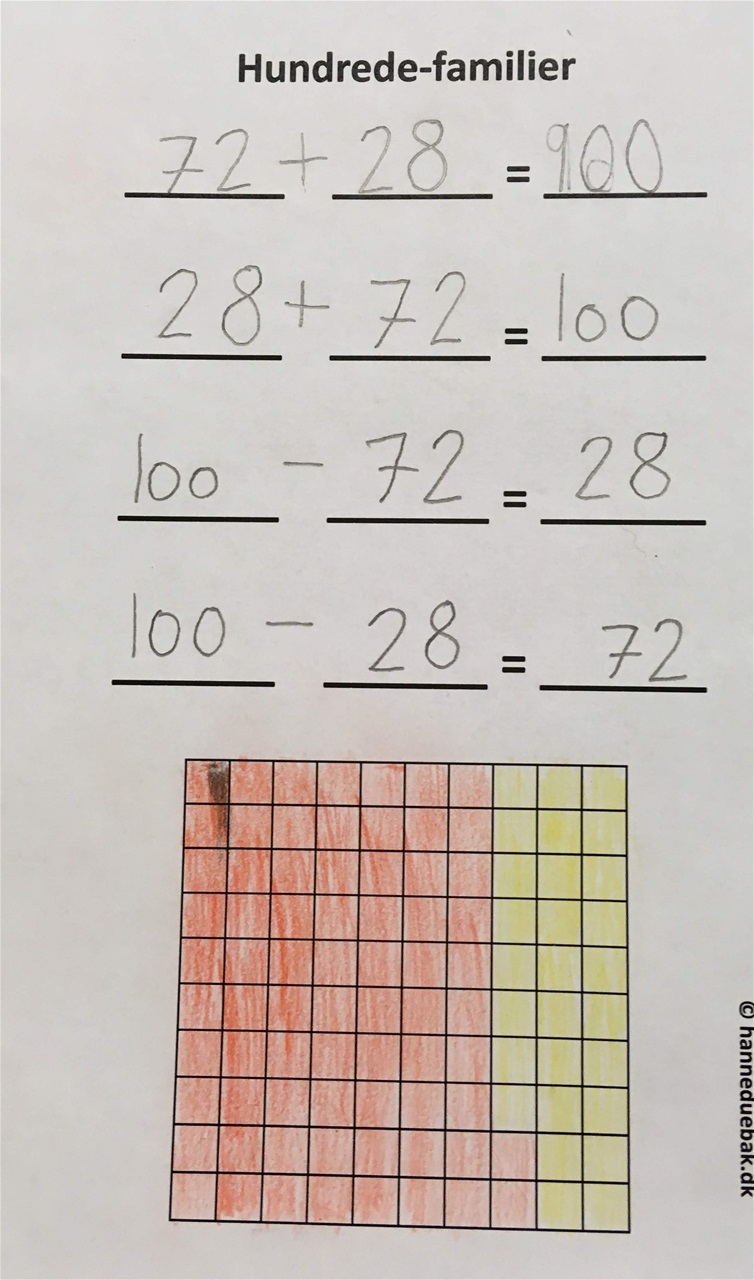 Hundrede-familier
72 + 28 = 100
28 + 72 = 100
100 - 72 = 28
100 - 28 = 72
© hanneduebak.dk